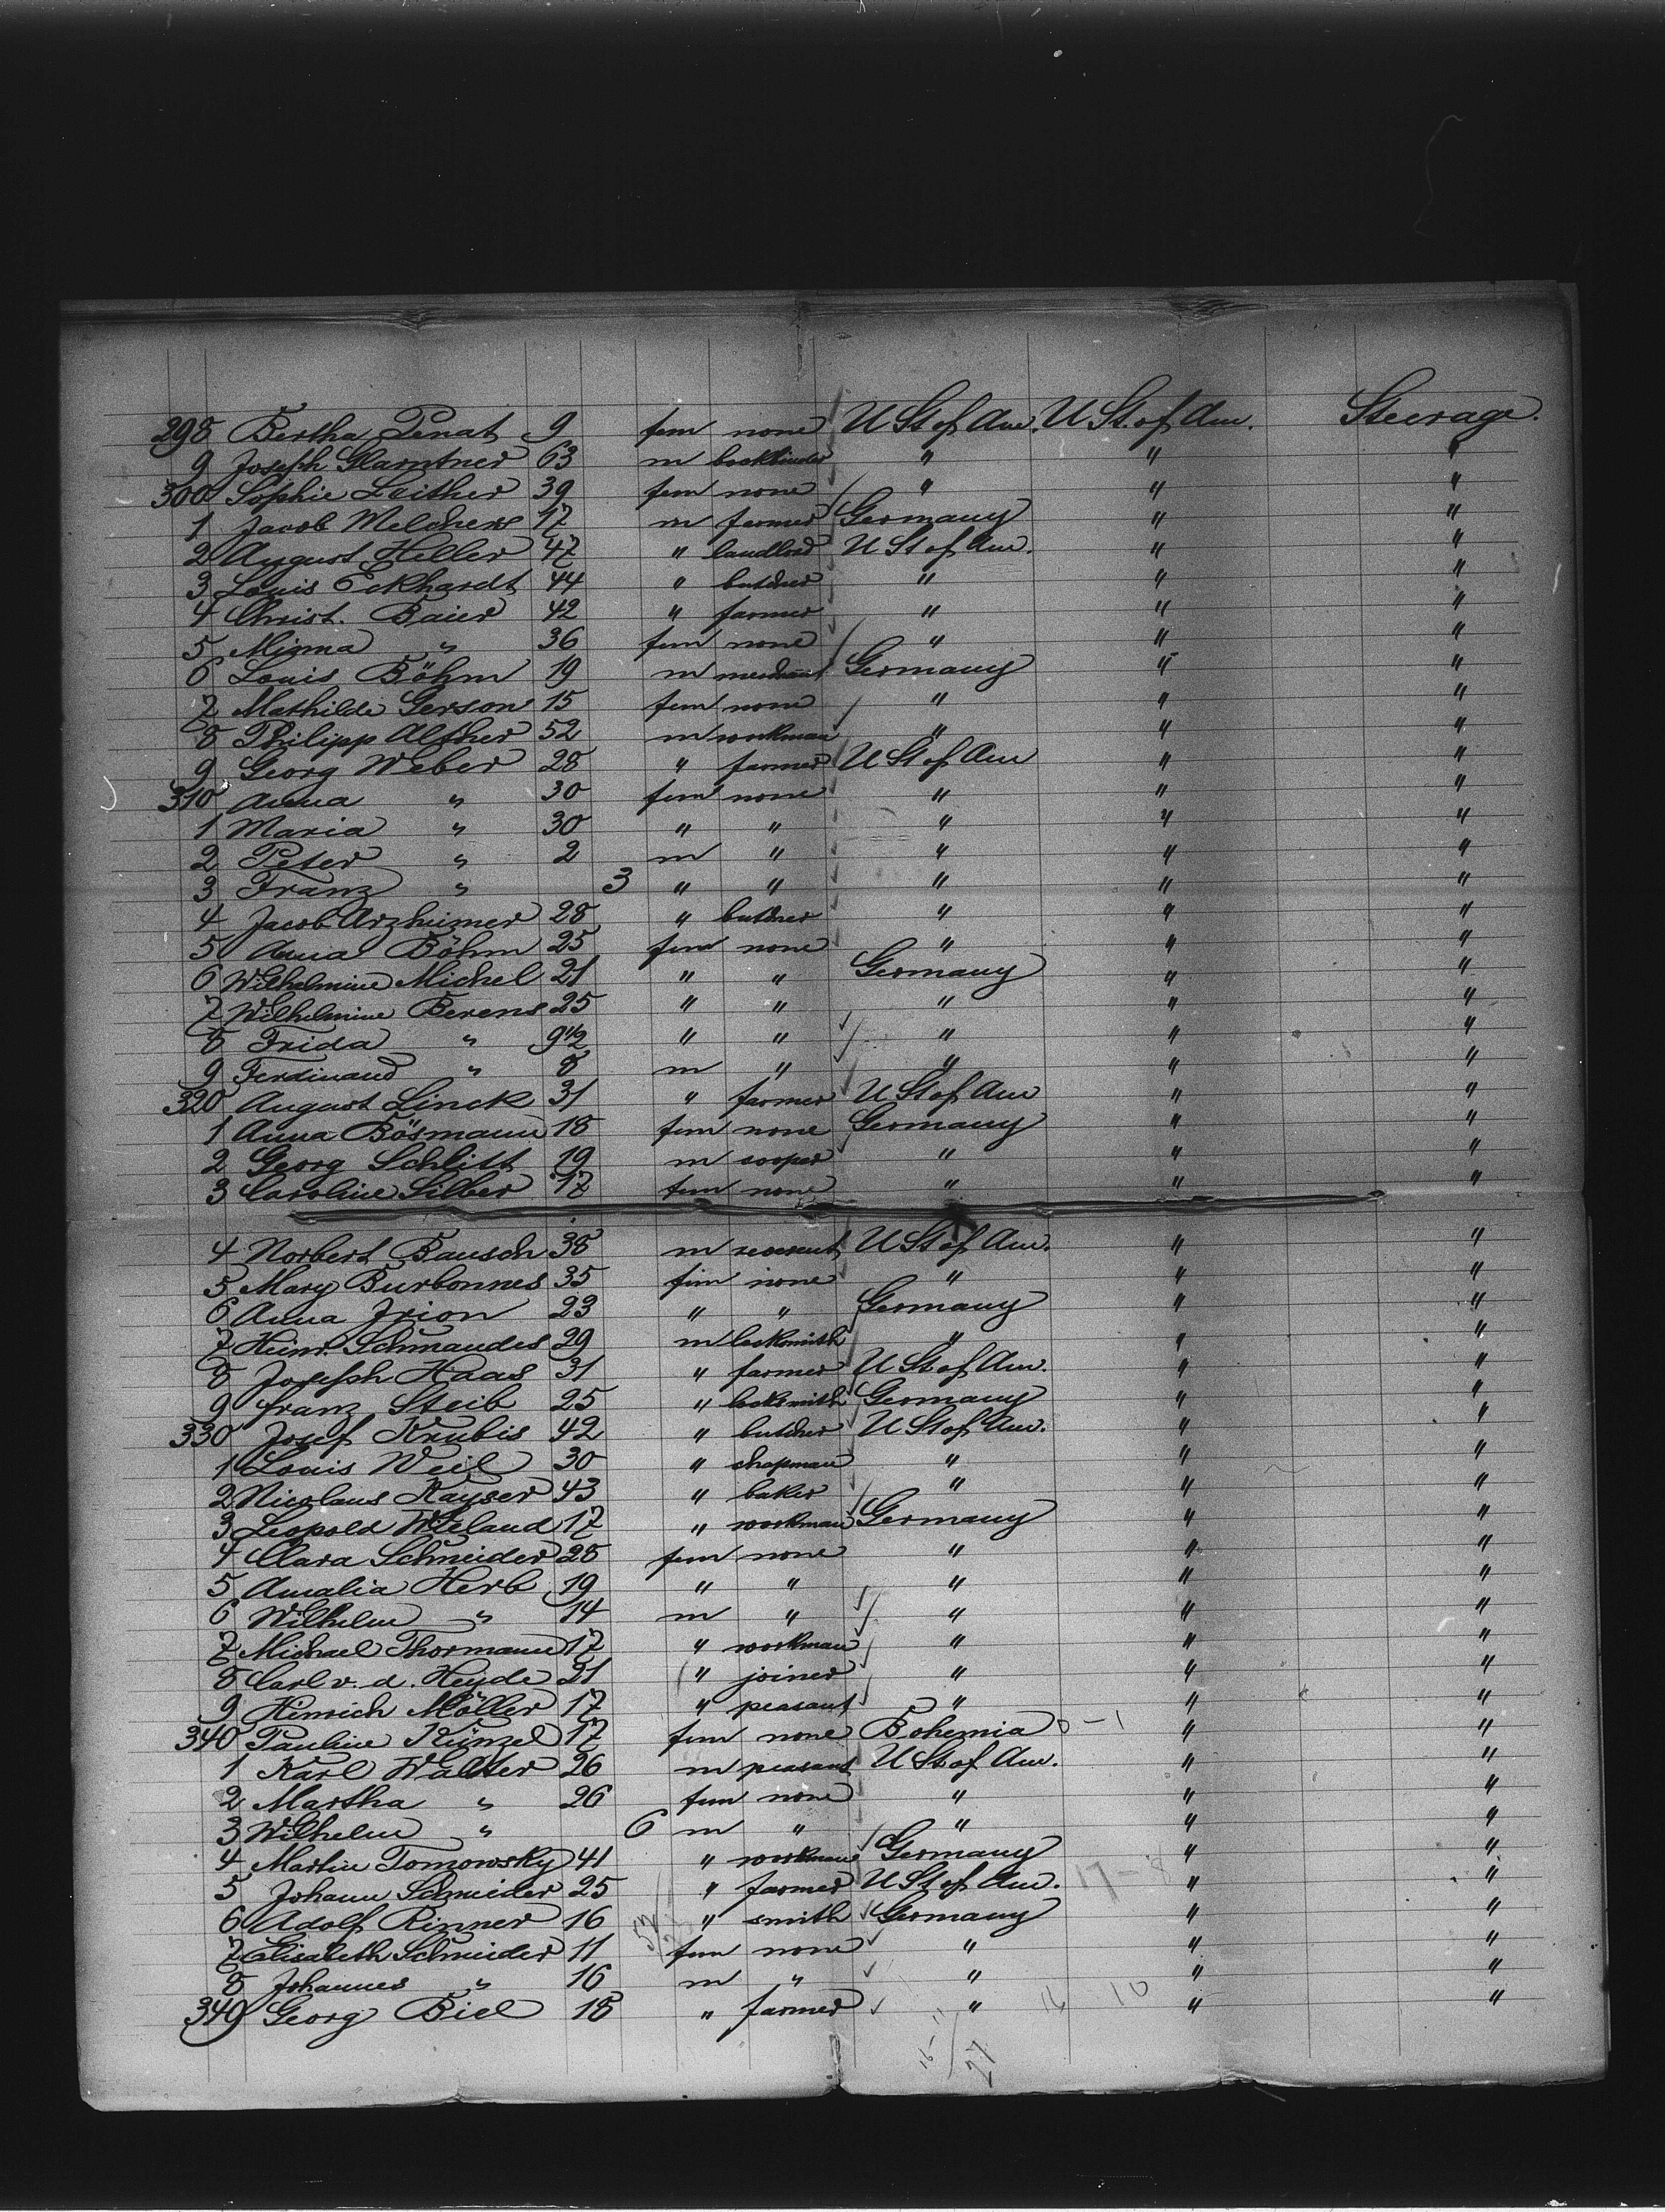 298 Bertha Penat 9 fem none U St of Am. U St. of Am. Steerage.
9 Joseph Glarntner 63 m bookbinder " " "
300 Sophie Leither 39 fem none " " "
1 Jacob Melchers 17 m farmer Germany " "
2 August Heller 47 " landlord U St of Am. " "
3 Louis Eckhardt 44 " butcher " " "
4 Christ. Baier 42 " farmer " " "
5 Minna " 36 fem none " " "
6 Louis Böhm 19 m merchant Germany " "
7 Mathilde Gerson 15 fem none " " "
8 Philipp Alther 52 m workman " " "
9 Georg Weber 28 " farmer U St of Am " "
310 Anna " 30 fem none " " "
1 Maria " 30 " " " " "
2 Peter " 2 m " " " "
3 Franz " 3 " " " " "
4 Jacob Arzheimer 28 " butcher " " "
5 Anna Böhm 25 fem none " " "
6 Wilhelmine Michel 21 " " Germany " "
7 Wilhelmine Berens 25 " " " " "
8 Frida " 9 1/2 " " " " "
9 Ferdinand " 8 m " " " "
320 August Linck 31 " farmer U St of Am " "
1 Anna Bösmann 18 fem none Germany " "
2 Georg Schlitt 19 m cooper " " "
3 Caroline Silber 17 fem none " " "
4 Norbert Bausch 38 m U St of Am. " "
5 Mary Burbonnes 35 fem none " " "
6 Anna Irion 23 " " Germany " "
7 Heinr. Schmandes 29 m locksmith " " "
8 Joseph Haas 31 " farmer U St of Am. " "
9 Franz Steib 25 " locksmith Germany " "
330 Josef Krubis 42 " butcher U St of Am. " "
1 Louis Weil 30 " chapman " " "
2 Nicolaus Kayser 43 " baker " " "
3 Leopold Wieland 17 " workman Germany " "
4 Clara Schneider 28 fem none " " "
5 Amalia Herb 19 " " " " "
6 Wilhelm " 14 m " " " "
7 Michael Thormann 17 " workman " " "
8 Carl v. d. Heyde 21 " joiner " " "
9 Hinrich Möller 17 " peasant " " "
340 Pauline Künzel 17 fem none Bohemia 0-1 " "
1 Karl Walter 26 m peasant U St of Am. " "
2 Martha " 26 fem none " " "
3 Wilhelm " 6 m " " " "
4 Martin Tomowsky 41 " workman Germany " "
5 Johann Schneider 25 " farmer U St of Am. 17-8 " "
6 Adolf Rinner 16 " smith Germany " "
7 Elisabeth Schneider 11 fem none " " "
8 Johannes " 16 m " " " "
349 Georg Biel 18 " farmer " 16 10 " "
27